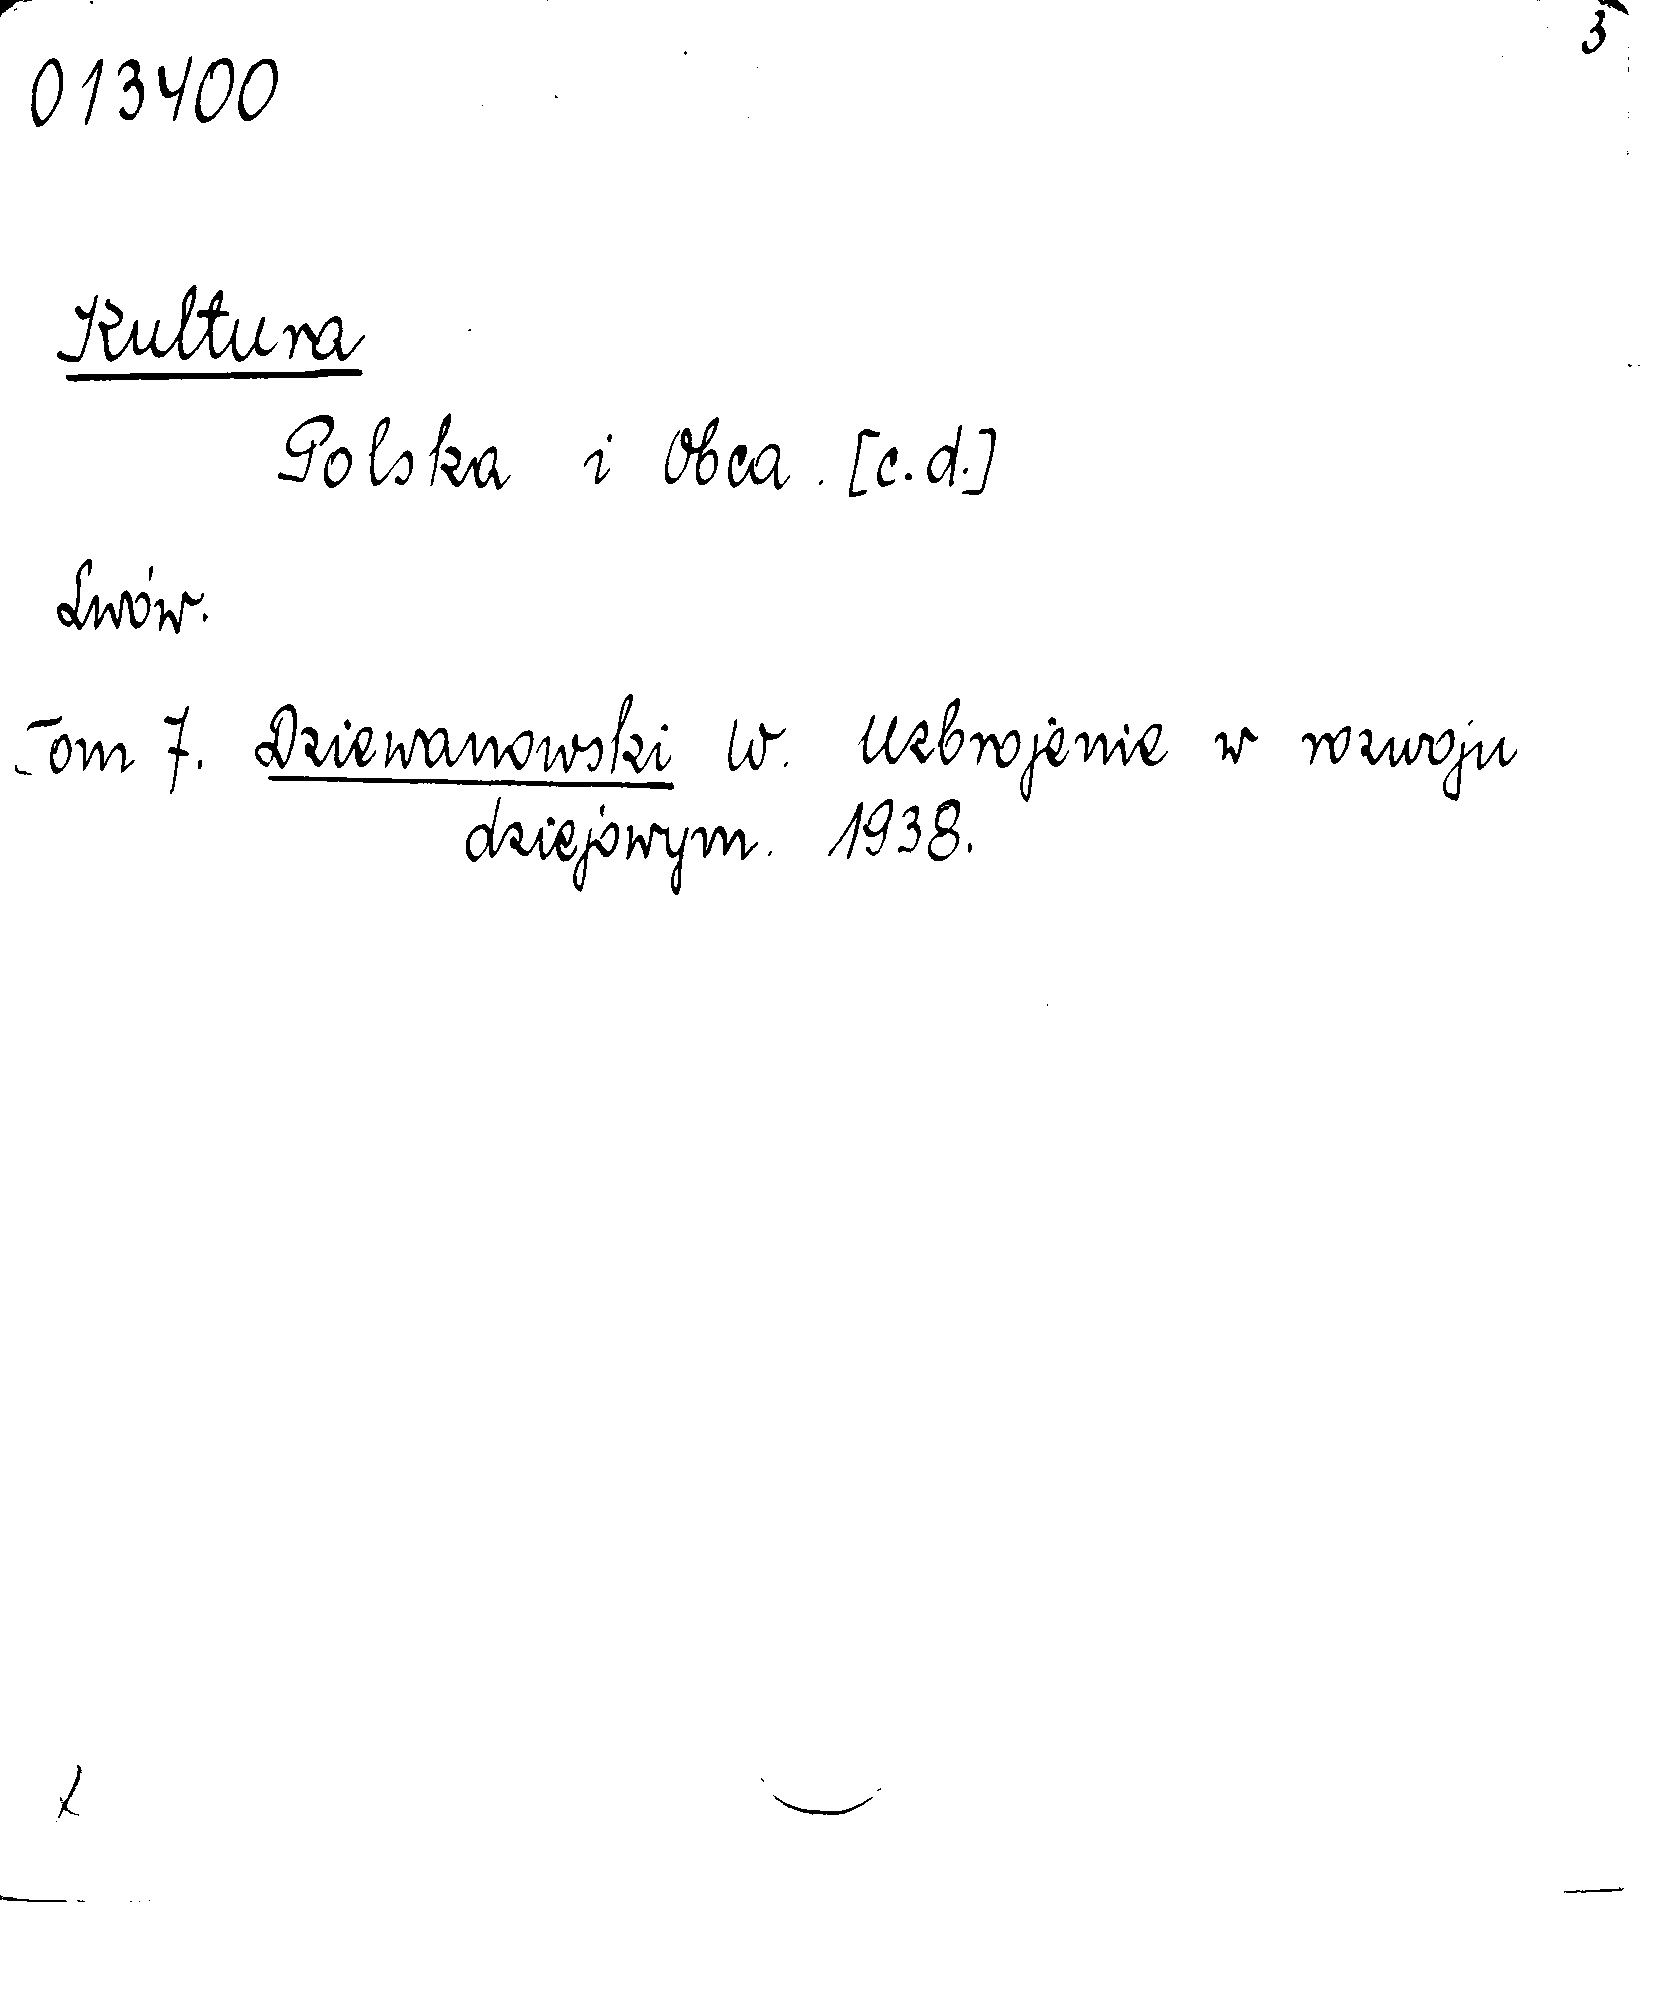 3
013400
Kultura
Polska i Obca. [c.d.]
Lwów.
Tom 7. Dziewanowski W. Uzbrojenie w rozwoju
dziejowym. 1938.